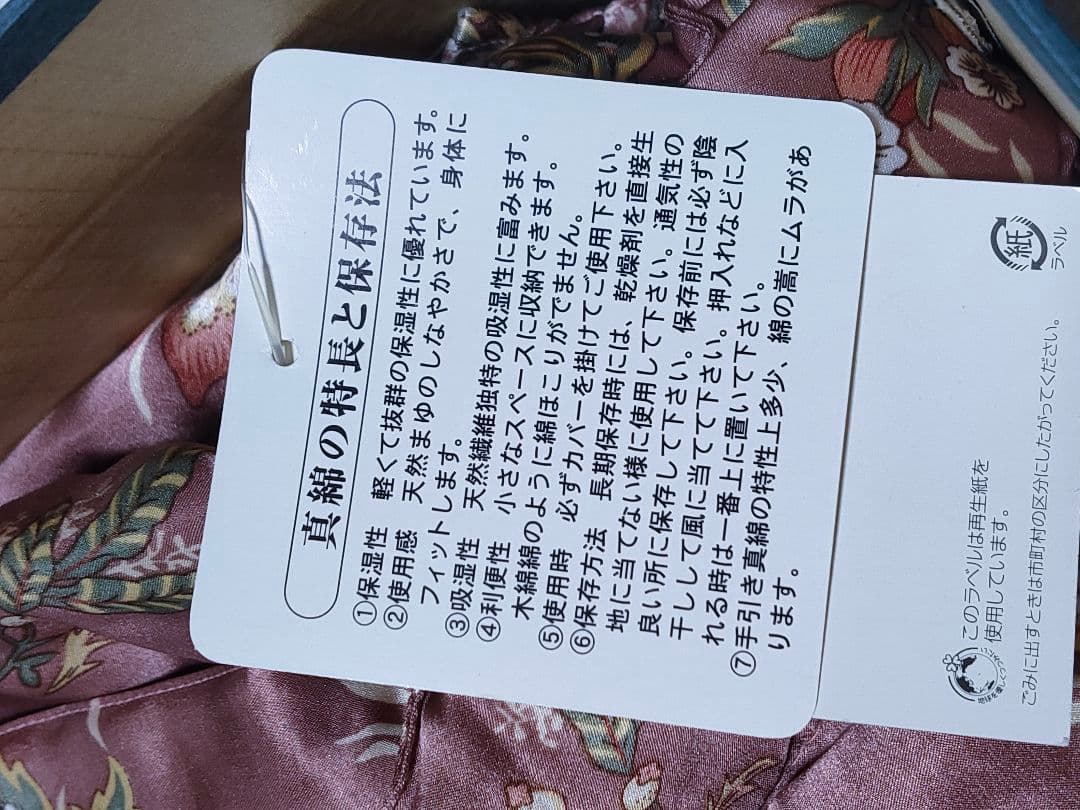 真綿の特長と保存法
①保湿性　軽くて抜群の保湿性に優れています。
②使用感　天然まゆのしなやかさで、身体に
フィットします。
③吸湿性　天然繊維独特の吸湿性に富みます。
④利便性　小さなスペースに収納できます。
木綿綿のように綿ほこりがでません。
⑤使用時　必ずカバーを掛けてご使用下さい。
⑥保存方法　長期保存時には、乾燥剤を直接生
地に当てない様に使用して下さい。通気性の
良い所に保存して下さい。保存前には必ず陰
干しして風に当てて下さい。押入れなどに入
れる時は一番上に置いて下さい。
⑦手引き真綿の特性上多少、綿の嵩にムラがあ
ります。
このラベルは再生紙を
使用しています。
ごみに出すときは市町村の区分にしたがってください。
地球を優しくつつみたい
紙
ラベル